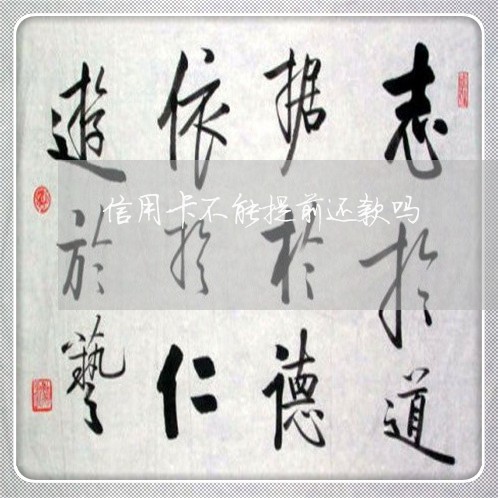 志於道
据於德
依於仁
遊於藝
信用卡不能提前还款吗